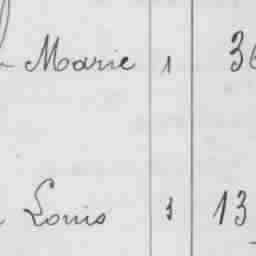 Marie 1 36
Louis 1 13